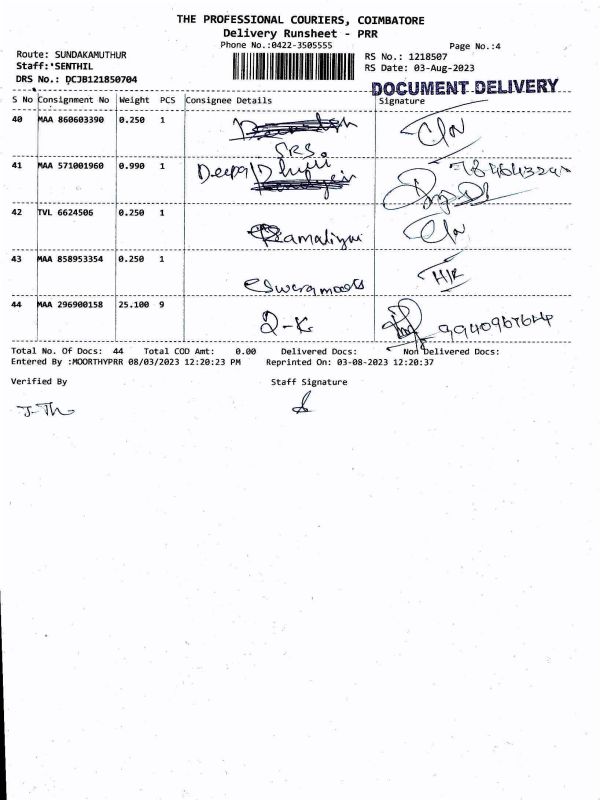 THE PROFESSIONAL COURIERS, COIMBATORE
Delivery Runsheet - PRR
Phone No.:0422-3505555
Page No.:4
Route: SUNDAKAMUTHUR
RS No.: 1218507
Staff:'SENTHIL
RS Date: 03-Aug-2023
DRS No.: DCJB121850704
DOCUMENT DELIVERY
S No Consignment No Weight PCS Consignee Details Signature
40 MAA 860603390 0.250 1
SRS.
41 MAA 571001960 0.990 1 Deepa
42 TVL 6624506 0.250 1
43 MAA 858953354 0.250 1
H/R
44 MAA 296900158 25.100 9
Total No. Of Docs: 44 Total COD Amt: 0.00 Delivered Docs: Non Delivered Docs:
Entered By :MOORTHYPRR 08/03/2023 12:20:23 PM Reprinted On: 03-08-2023 12:20:37
Verified By Staff Signature